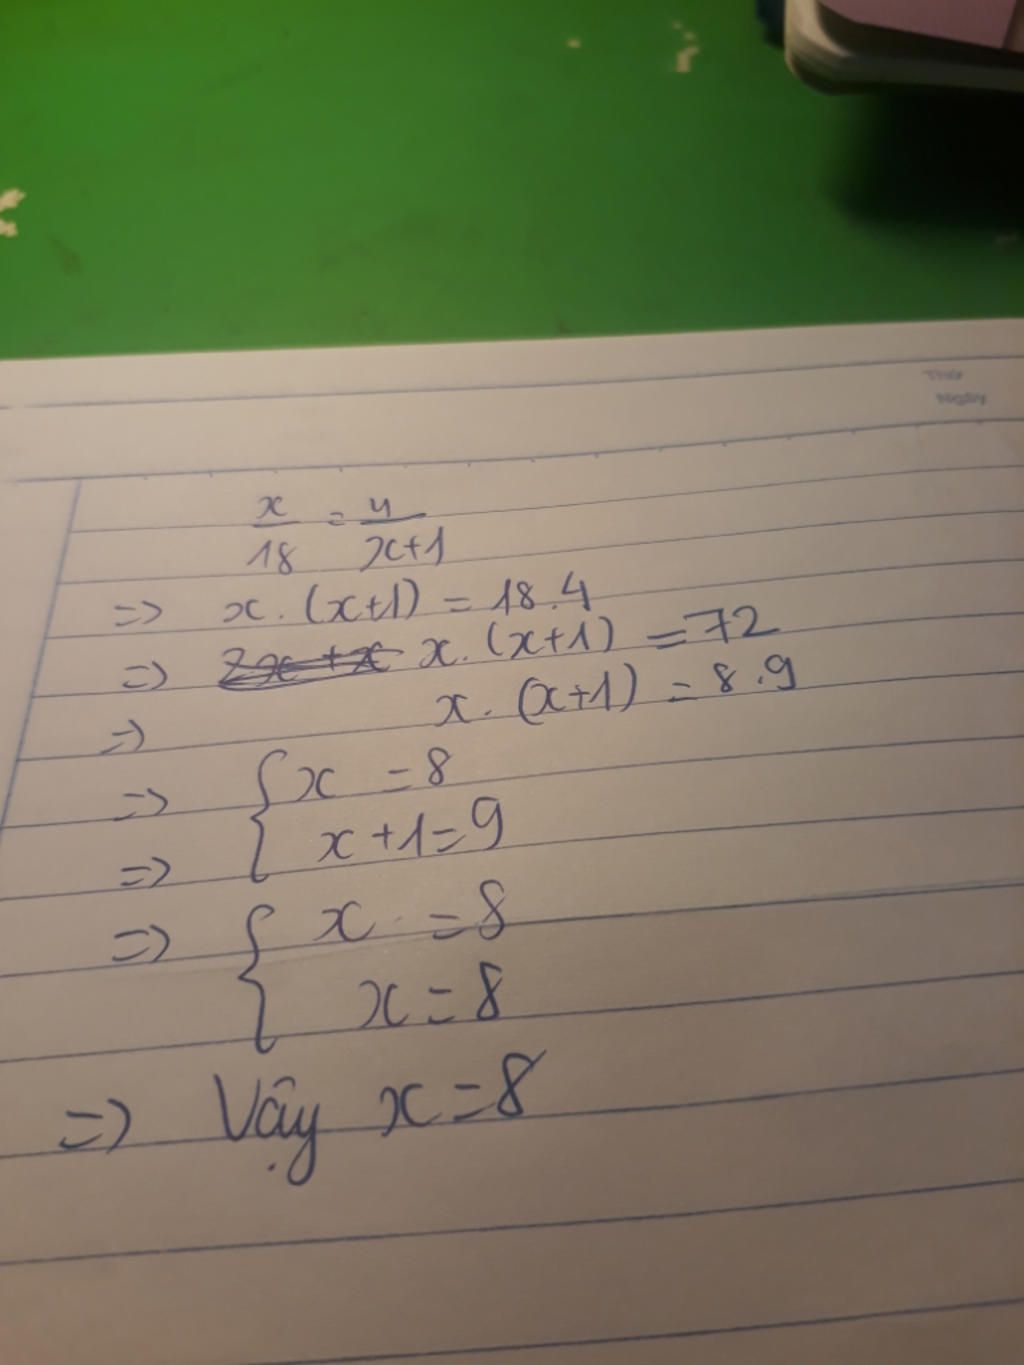 Thứ
Ngày
x/18 = 4/x+1
=> x. (x+1) = 18.4
=> x. (x+1) = 72
=> x. (x+1) = 8.9
=> { x = 8
=> x+1=9
=> { x = 8
x = 8
=> Vậy x=8